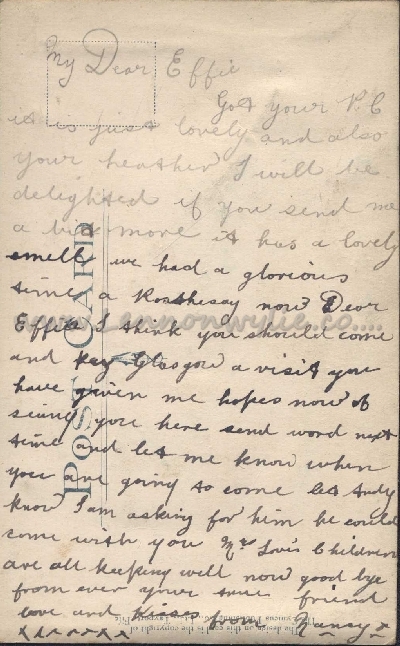 My Dear Effie
Got your P.C
it is just lovely and also
your heather I will be
delighted if you send me
a bit more it has a lovely
smell we had a glorious
time a Rosthesay now Dear
Effie I think you should come
and Glasgow a visit you
have given me hopes now of
seing you here send word next
time and let me know when
you are going to come let Andy
know I am asking for him he could
come with you Mrs Children
are all keeping well now good bye
from ever your true friend
love and Kisses from Nansy x
x x x x x x x
POST CARD
The design on this card is the copyright of